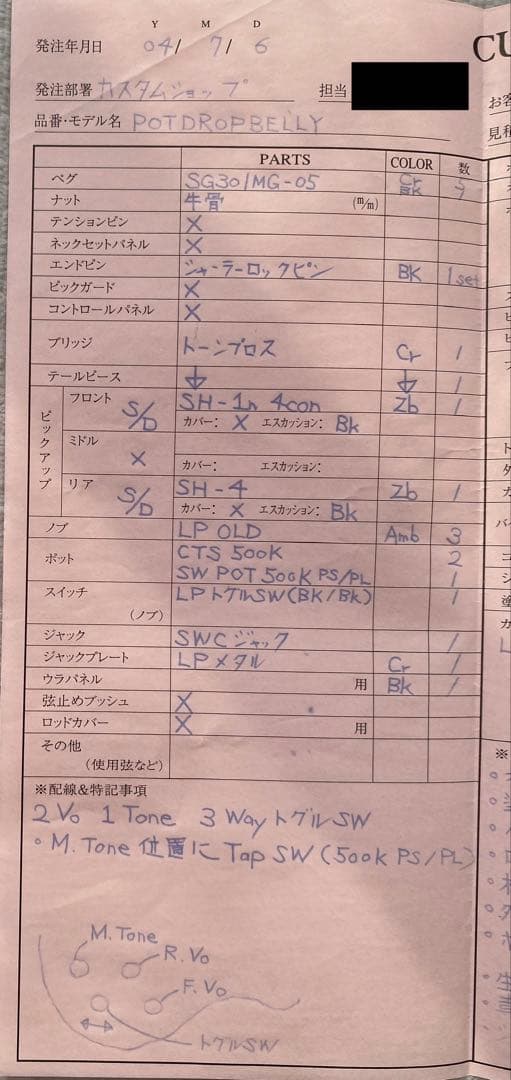 Y M D
発注年月日 04/ 7/ 6
発注部署 カスタムショップ 担当
品番・モデル名 POTDROPBELLY
PARTS COLOR 数
ペグ SG301MG-05 Cr
ナット 牛骨 (m/m)
テンションピン X
ネックセットパネル X
エンドピン シャーラーロックピン BK 1set
ピックガード X
コントロールパネル X
ブリッジ トーンプロス Cr 1
テールピース ↓ ↓ 1
ピックアップ
フロント S/D SH-1n 4con Zb 1
カバー: X エスカッション: Bk
ミドル X
カバー: エスカッション:
リア S/D SH-4 Zb 1
カバー: X エスカッション: Bk
ノブ LP OLD Amb 3
ポット CTS 500K 2
SW POT 500K PS/PL 1
スイッチ LPトグルSW(BK/BK) 1
(ノブ)
ジャック SWCジャック 1
ジャックプレート LPメタル Cr 1
ウラパネル 用 Bk 1
弦止めブッシュ X
ロッドカバー X 用
その他
(使用弦など)
※配線&特記事項
2Vo 1Tone 3WayトグルSW
・M.Tone 位置にTap SW(500K PS/PL)
M.Tone
R.Vo
F.Vo
トグルSW
CU
お客
見積